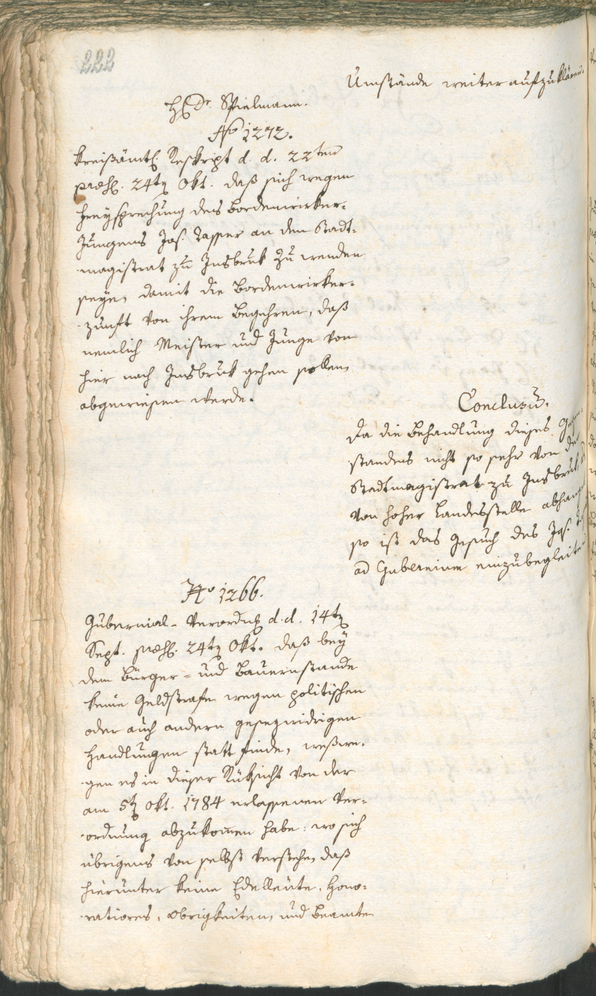 222
Umstände weiter aufzuklären.
H. Dr. Spielmann.
No 1272.
Kreißämtl. Reskript d. d. 22ten
præs. 24tn Okt. daß sich wegen
Freysprechung des Bordenwirker-
Jungens Jos. Tasser an den Stadt-
magistrat zu Insbruk zu wenden
seyn, damit die Bordenwirker-
zunft von ihrem Begehren, daß
nemlich Meister und Junge von
hier nach Insbruk gehen sollen,
abgewiesen werde.
Conclusū.
Da die Behandlung dieses Gegen
standes nicht so sehr von dem
Stadtmagistrat zu Insbruk, als
von hoher Landesstelle abhange
so ist das Gesuch des Jos.
ad Gubernium einzubegleiten
No 1266.
Gubernial-Verordng d. d. 14tn
Sept. præs. 24tn Okt. daß bey
dem Bürger- und Bauernstande
keine Geldstrafe wegen politischen
oder auch andern gesezwidrigen
Handlungen statt finde, weßwe-
gen es in dieser Rüksicht von der
am 5tn Okt. 1784 erlassenen Ver-
ordnung abzukom̄en habe: wo sich
übrigens von selbst verstehe, daß
hierunter keine Edelleute, Hono-
ratiores, Obrigkeiten, und Beamte